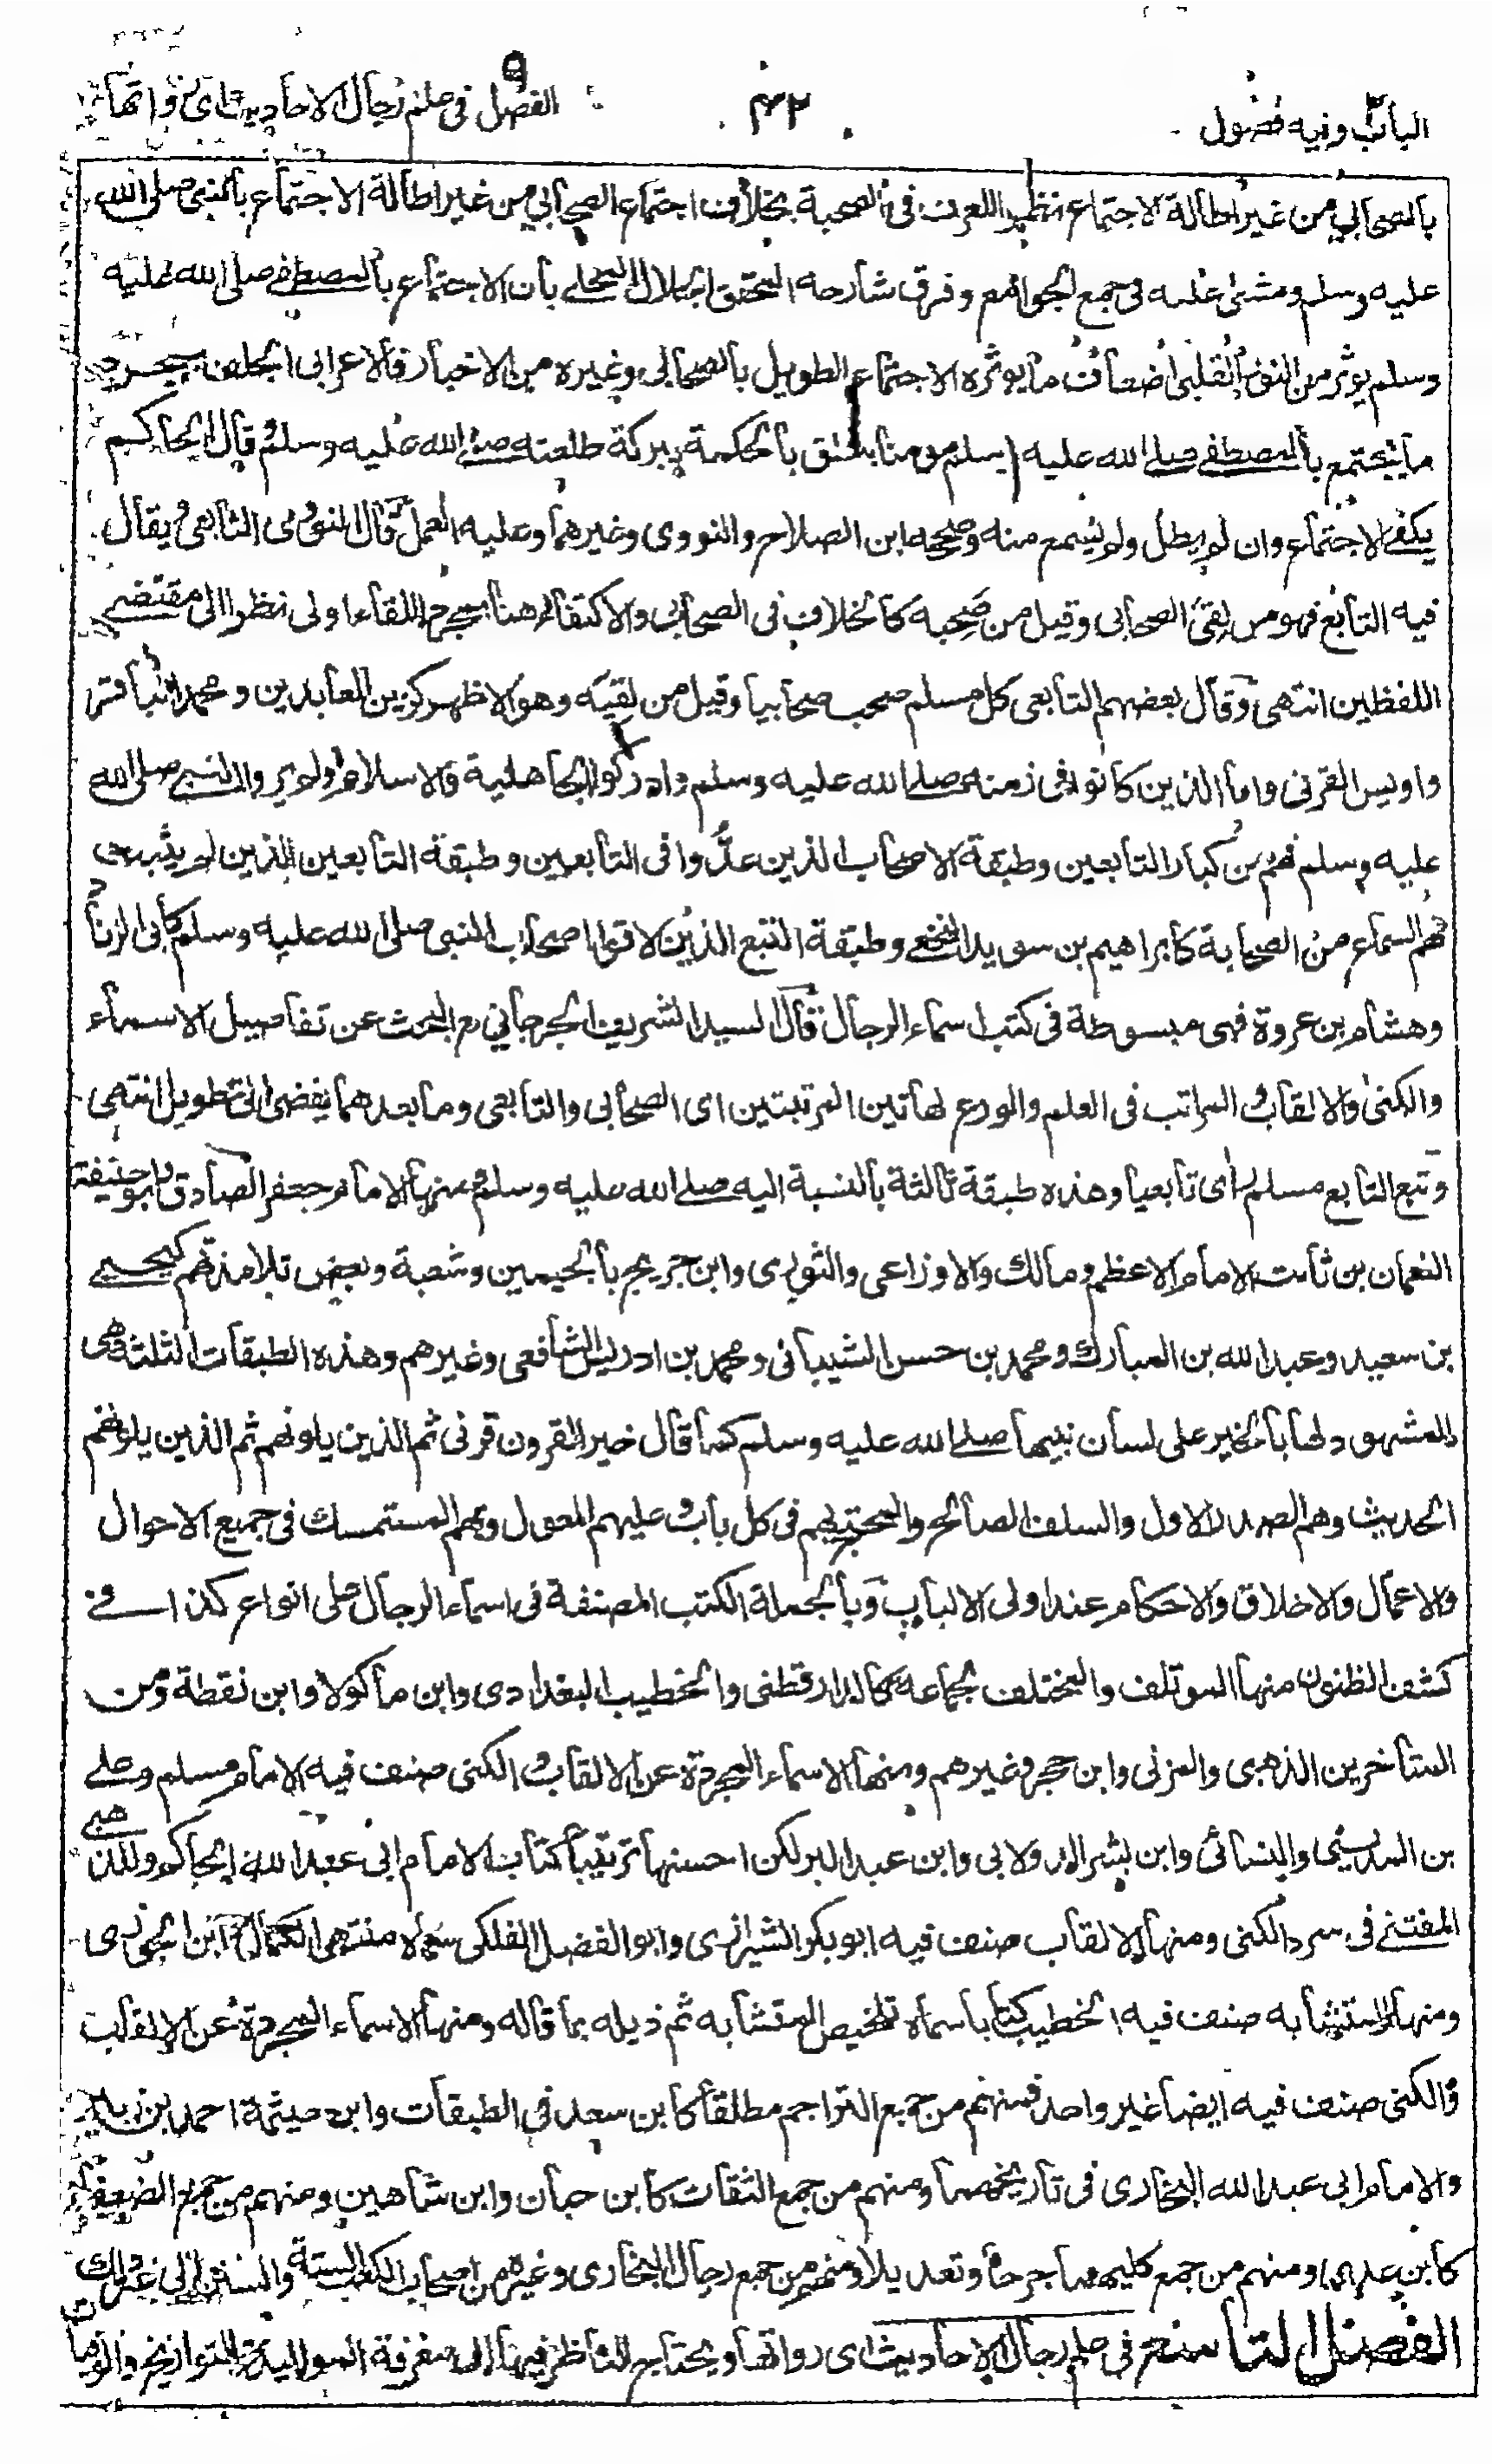 الباب وفيه فصول
٤٢
الفصل ٩ في علم رجال الاحاديث اى رواتها
بالصحابي من غير اطالة الاجتماع نظرا للعرف في الصحبة بخلاف اجتماع الصحابي من غير اطالة الاجتماع بالنبي صلى الله
عليه وسلم ومشى عليه في جمع الجوامع وفرق شارحه المحقق الجلال المحلي بان الاجتماع بالمصطفى صلى الله عليه
وسلم يوثر من النور القلبى اضعاف ما يوثره الاجتماع الطويل بالصحابى وغيره من الاخيار فالاعرابى الجلف بمجرد
ما يجتمع بالمصطفى صلى الله عليه وسلم مومنا ينطق بالحكمة ببركة طلعته صلى الله عليه وسلم وقال الحاكم
يكفى الاجتماع وان لم يطل ولم يسمع منه وصححه ابن الصلاح والنووى وغيرهما وعليه العمل قال النووى التابعى ويقال
فيه التابع فهو من لقى الصحابى وقيل من صحبه كالخلاف فى الصحابى والاكتفاء هنا بمجرد اللقاء اولى نظرا الى مقتضى
اللفظين انتهى وقال بعضهم التابعى كل مسلم صحب صحابيا وقيل من لقيه وهو الاظهر كزين العابدين ومحمد الباقر
واويس القرنى واما الذين كانوا فى زمنه صلى الله عليه وسلم وادركوا الجاهلية والاسلام ولم يروا النبى صلى الله
عليه وسلم فهم من كبار التابعين وطبقة الاصحاب الذين عدوا فى التابعين وطبقة التابعين الذين لم يثبت
لهم السماع من الصحابة كابراهيم بن سويد النخعى وطبقة التبع الذين لاقوا اصحاب النبى صلى الله عليه وسلم كابى الزناد
وهشام بن عروة فهى مبسوطة فى كتب اسماء الرجال قال السيد الشريف الجرجانى رح البحث عن تفاصيل الاسماء
والكنى والالقاب والمراتب فى العلم والورع لهاتين المرتبتين اى الصحابى والتابعى وما بعدهما يفضى الى تطويل انتهى
وتبع التابع مسلم راى تابعيا وهذه طبقة ثالثة بالنسبة اليه صلى الله عليه وسلم ومنها الامام جعفر الصادق وابو حنيفة
النعمان بن ثابت الامام الاعظم ومالك والاوزاعى والثورى وابن جريج بالجيمين وشعبة وبعض تلامذتهم كيحيى
بن سعيد وعبد الله بن المبارك ومحمد بن حسن الشيبانى ومحمد بن ادريس الشافعى وغيرهم وهذه الطبقات الثلثة هى
المشهود لها بالخير على لسان نبيها صلى الله عليه وسلم كما قال خير القرون قرنى ثم الذين يلونهم ثم الذين يلونهم
الحديث وهم الصدر الاول والسلف الصالح والمحتج بهم فى كل باب وعليهم المعول وبهم المستمسك فى جميع الاحوال
والاعمال والاخلاق والاحكام عند اولى الالباب وبالجملة الكتب المصنفة فى اسماء الرجال على انواع كذا فى
كشف الظنون منها الموتلف والمختلف لجماعة كالدارقطنى والخطيب البغدادى وابن ماكولا وابن نقطة ومن
المتاخرين الذهبى والمزنى وابن حجر وغيرهم ومنها الاسماء المجردة عن الالقاب والكنى صنف فيه الامام مسلم وعلى
بن المدينى والنسائى وابن بشر الدولابى وابن عبد البر لكن احسنها ترتيبا كتاب الامام ابى عبد الله الحاكم وللذهبى
المقتنى فى سرد الكنى ومنها الالقاب صنف فيه ابو بكر الشيرازى وابو الفضل الفلكى سماه منتهى الكمال وابن الجوزى
ومنها المتشابه صنف فيه الخطيب كتابا سماه تلخيص المتشابه ثم ذيله بما قاله ومنها الاسماء المجردة عن الالقاب
والكنى صنف فيه ايضا غير واحد فمنهم من جمع التراجم مطلقا كابن سعد فى الطبقات وابن حيثمة احمد بن زهير
والامام ابى عبد الله البخارى فى تاريخهما ومنهم من جمع الثقات كابن حبان وابن شاهين ومنهم من جمع الضعفاء
كابن عدى ومنهم من جمع كليهما جرحا وتعديلا ومنهم من جمع رجال البخارى وغيره من اصحاب الكتب الستة والسنن الى غير ذلك
الفصل التاسع فى علم رجال الاحاديث اى رواتها ويحتاج الناظر فيها الى معرفة المواليد والتواريخ والوفيات